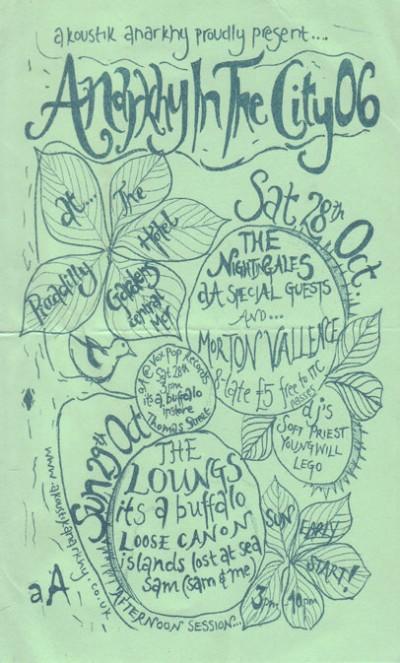 akoustik anarkhy proudly present....
Anarkhy In The City 06
at... The
Hotel
Piccadilly
Gardens
central
Mcr
Sat 28th Oct...
THE
NIGHTINGALES
aA SPECIAL GUESTS
AND...
MORTON VALLENCE
8-late £5 free to ITC
passes
dj's
SOFT PRIEST
YOUNG WILL
LEGO
@ Vox Pop Records
Sat 28th
3pm
its a buffalo
instore
Thomas Street
Sun 29th Oct
THE
LOUNGS
its a buffalo
LOOSE CANON
islands lost at sea
Sam (sam & me)
AFTERNOON SESSION...
SUN EARLY
START!
3pm -10pm
www.akoustikanarkhy.co.uk
aA